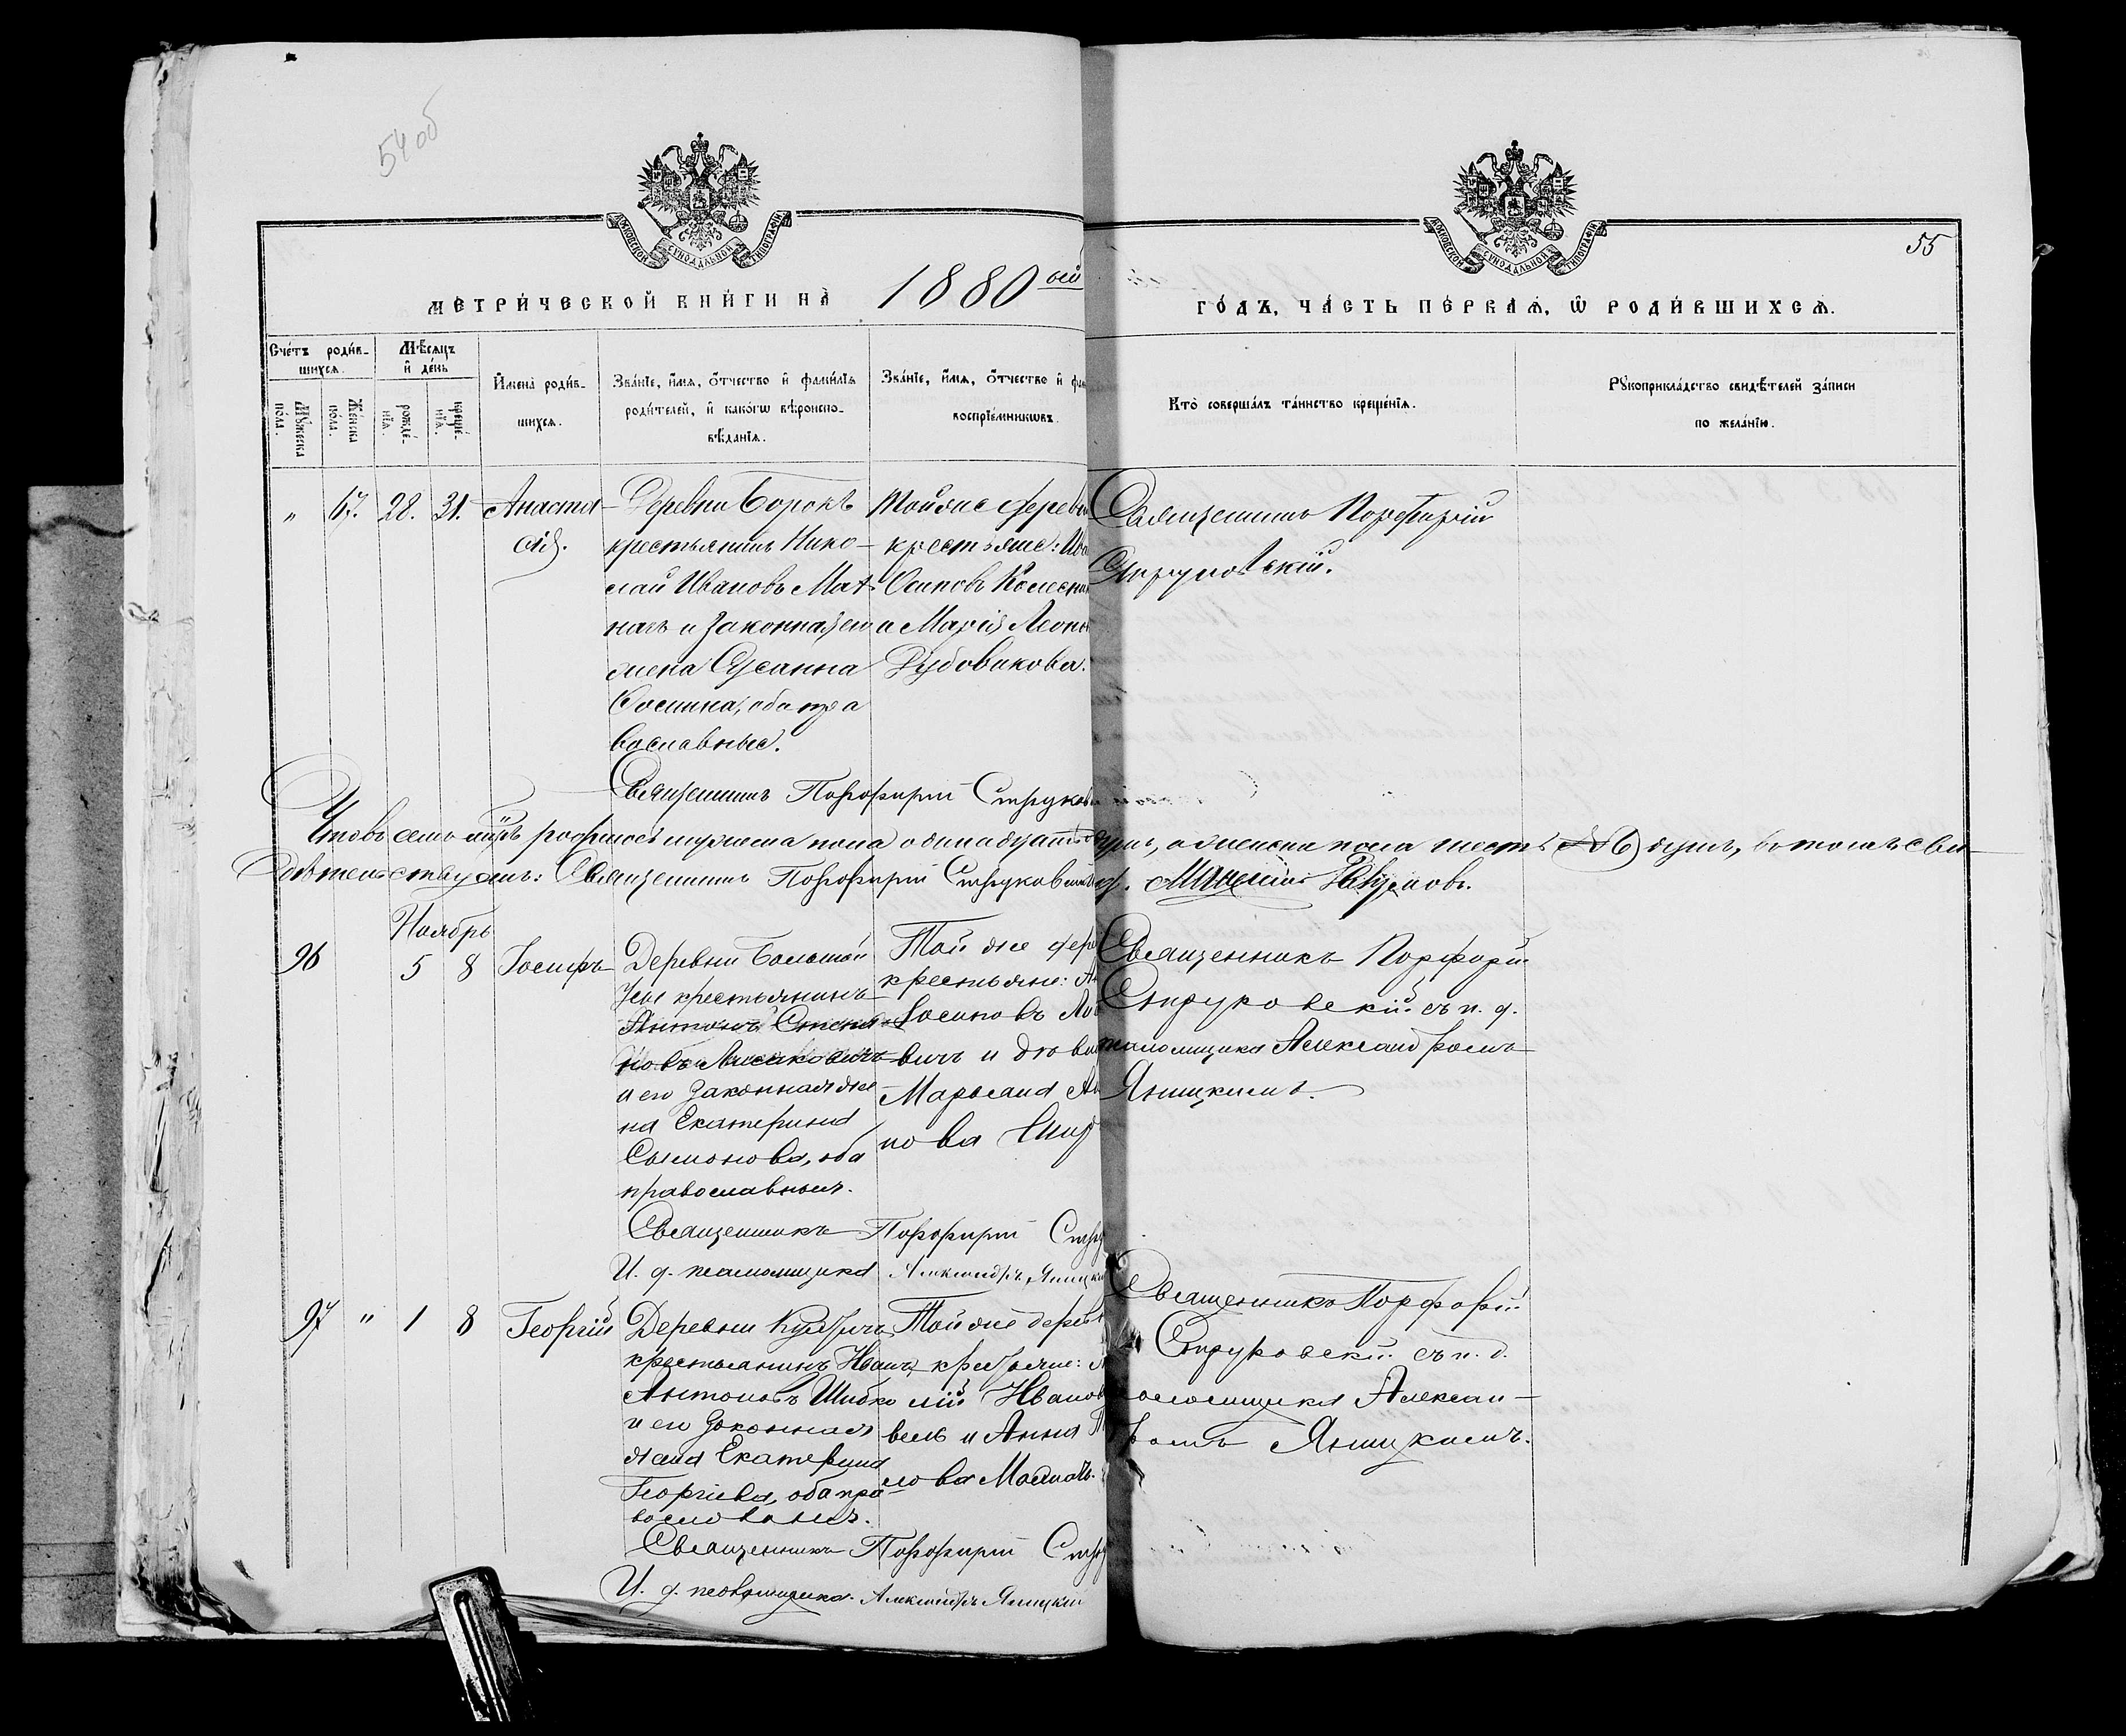 54 об
55
МЕТРИ́ЧЕСКОЙ КНИ́ГИ НА̀ 1880 ый
ГО́ДЪ, ЧА́СТЬ ПЕ́РВАѦ, Ѡ҆ РОДИ́ВШИХСѦ.
Сче́тъ роди́в-
шихсѧ.
Мѣ́сѧцъ
и҆ де́нь
Мꙋ́жеска
по́ла.
Же́нска
по́ла.
рожде́-
нїѧ.
креще́-
нїѧ.
И҆мена̀ роди́в-
шихсѧ.
Зва́нїе, и҆́мѧ, ѻ҆́тчество и҆ фами́лїѧ
роди́телей, и҆ како́гѡ вѣроиспо-
вѣ́данїѧ.
Зва́нїе, и҆́мѧ, ѻ҆́тчество и҆
воспрїе́мникѡвъ.
Кто̀ соверша́лъ та́инство креще́нїѧ.
Рꙋкоприкла́дство свидѣ́телей за́писи
по жела́нїю.
" 67. 28. 31. Анаста-
сія.
Деревни Борокъ
крестьянинъ Нико-
лай Ивановъ Мат-
нагъ и законная его
жена Сусанна
Осипова, оба пра
вославные.
Тойже дерев
крестьяне:
Осиповъ
и Марія
Дубовикова.
Священникъ Порфирій
Струковскій.
Священникъ Порфирій Струков
Итого въ семъ м-цѣ родилось мужеска пола одинадцать душъ, а женска пола шесть (6) душъ, въ томъ сви-
дѣтельствуемъ: Священникъ Порфирій Струковскій
Ноябрь
96 5 8 Іосифъ
Деревни Большой
крестьянинъ
Антонъ Степа-
новъ Лисаковичъ
и его законная же
на Екатерина
Сымонова, оба
православные.
Той же дер
крестьяне:
Іосиповъ
вичъ и
Марьяна
нова
Священникъ Порфирій
Струковскій съ и. д.
псаломщика Александромъ
Яницкимъ.
Священникъ Порфирій Стру
И. д. псаломщика Александръ Яницкій
97 " 1 8 Георгій
Деревни
крестьянинъ Иванъ
Антоновъ Шибко
и его законная
жена Екатерина
Георгіева, оба пра
вославные.
Той же дерев
крестьяне:
лій Иванов
вель и Анна
лова
Священникъ Порфирій
Струковскій съ и. д.
псаломщика Алексан-
дромъ Яницкимъ.
Священникъ Порфирій Стру
И. д. псаломщика Александръ Яницкій